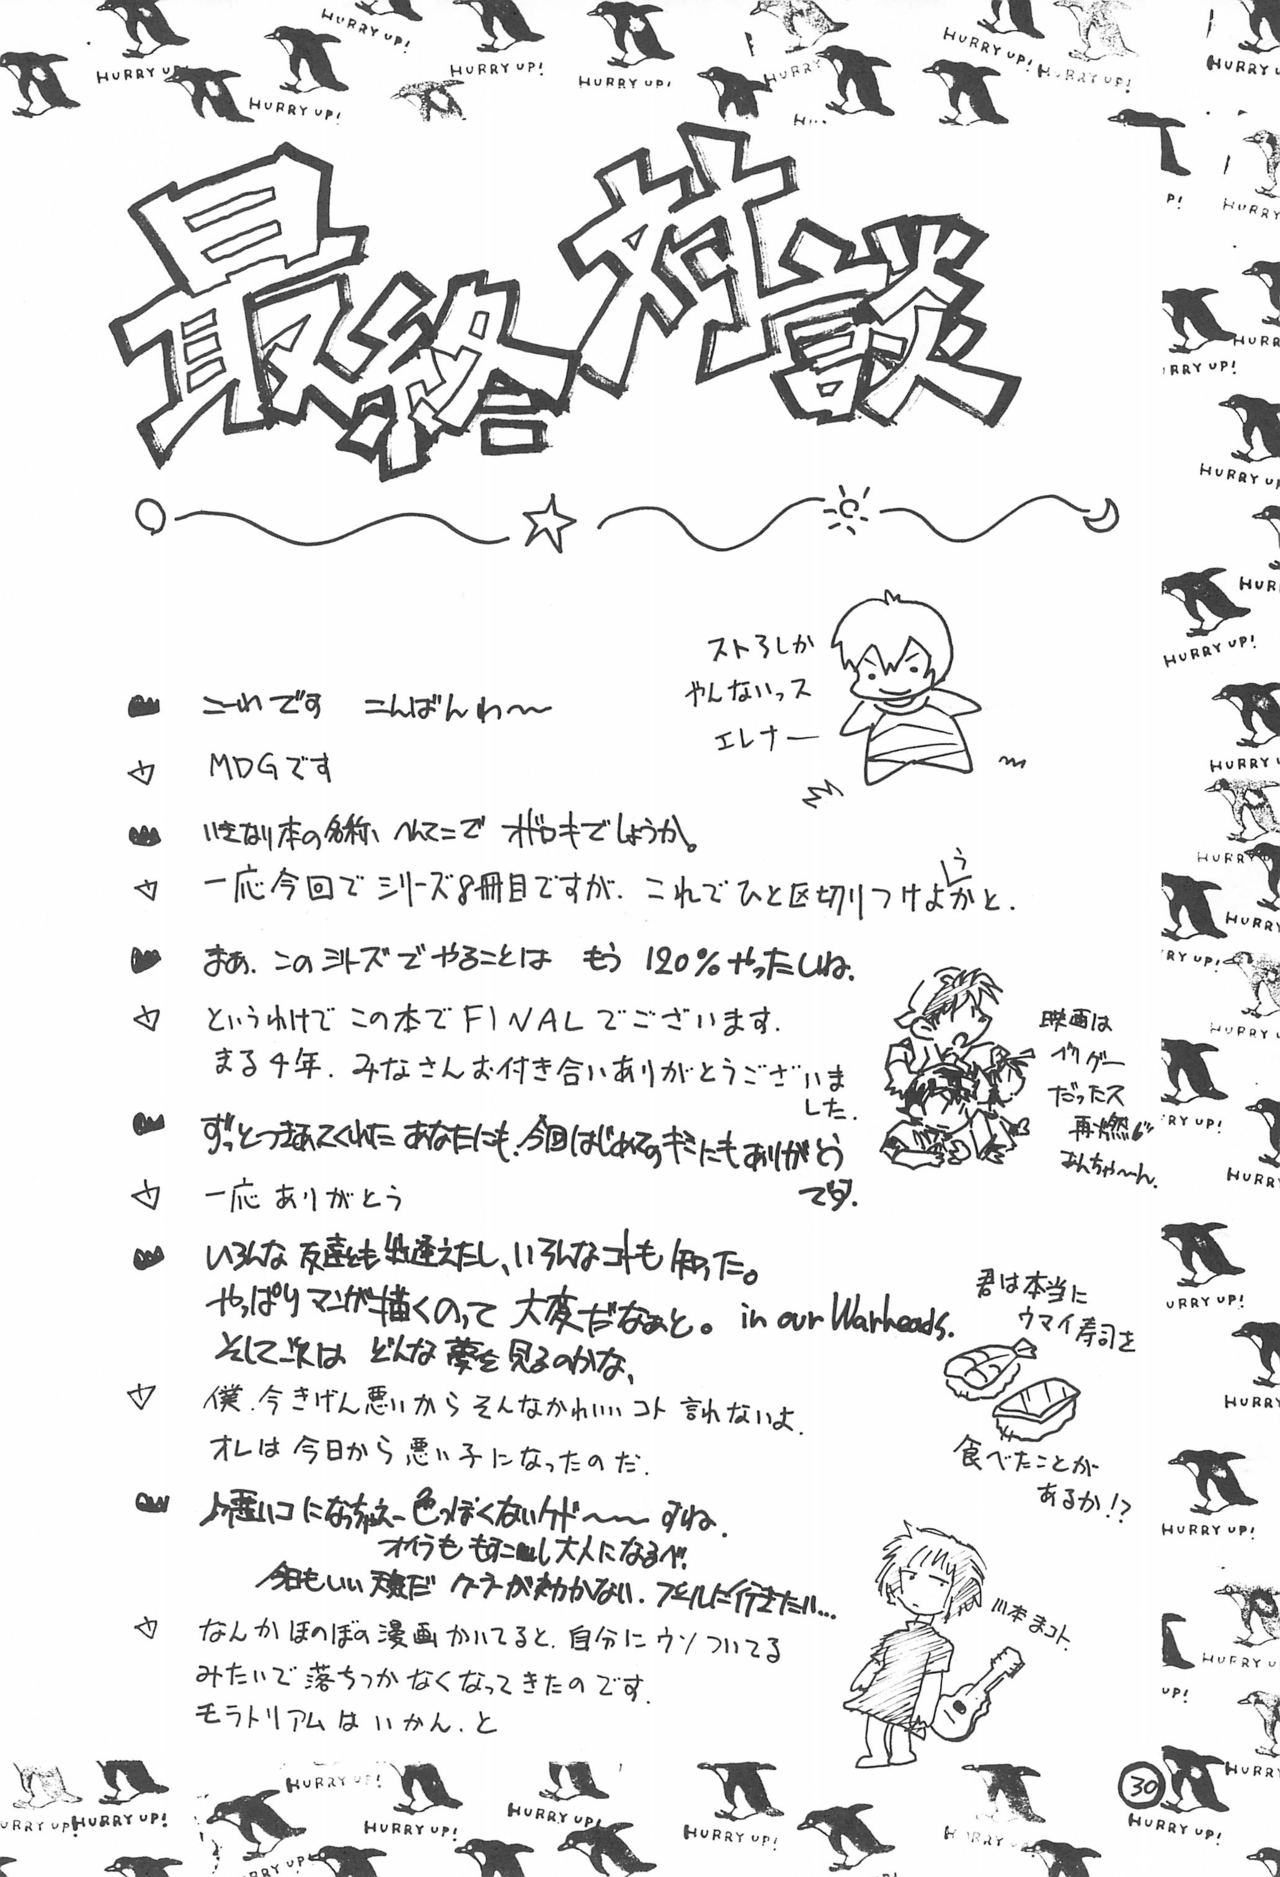 最終対談
ストろしか
やんないっス
エレナー
こーれです こんばんわ〜
MDGです
いきなり本の名称、へんてこで オドロキでしょうか。
一応今回でシリーズ8冊目ですが、これでひと区切りつけようかと。
まぁ、このシリーズでやることは もう 120%やったしね。
というわけで この本で FINALでございます。
まる4年、みなさんお付き合いありがとうございま
した。
ずっとつきあってくれた あなたにも、今回はじめてのキミにもありがとう
です。
一応 ありがとう
映画は
ベリグー
だったス
再燃
まんちゃ〜ん。
いろんな 友達とも出逢えたし、いろんなコトも知った。
やっぱりマンガ描くのって 大変だなぁと。 in our Warheads.
そして次は どんな夢を見るのかな、
僕、今きげん悪いから そんなかわいいコト 言れないよ。
オレは今日から悪い子になったのだ。
君は本当に
ウマイ寿司を
食べたことが
あるか!?
悪いコになっちゃえー 色っぽくないケド〜〜 すね。
オイラも もすこーし大人になるべ!
今日もいい天気だ クーラーが効かない、プールに行きたい…
なんかほのぼの漫画かいてると、自分にウソついてる
みたいで落ちつかなくなってきたのです。
モラトリアムはいかん、と
川本まコト
30
HURRY UP!
HURRY UP!
HURRY UP!
HURRY UP!
HURRY UP!
HURRY UP!
HURRY UP!
HURRY UP!
HURRY UP!
HURRY UP!
HURRY UP!
HURRY UP!